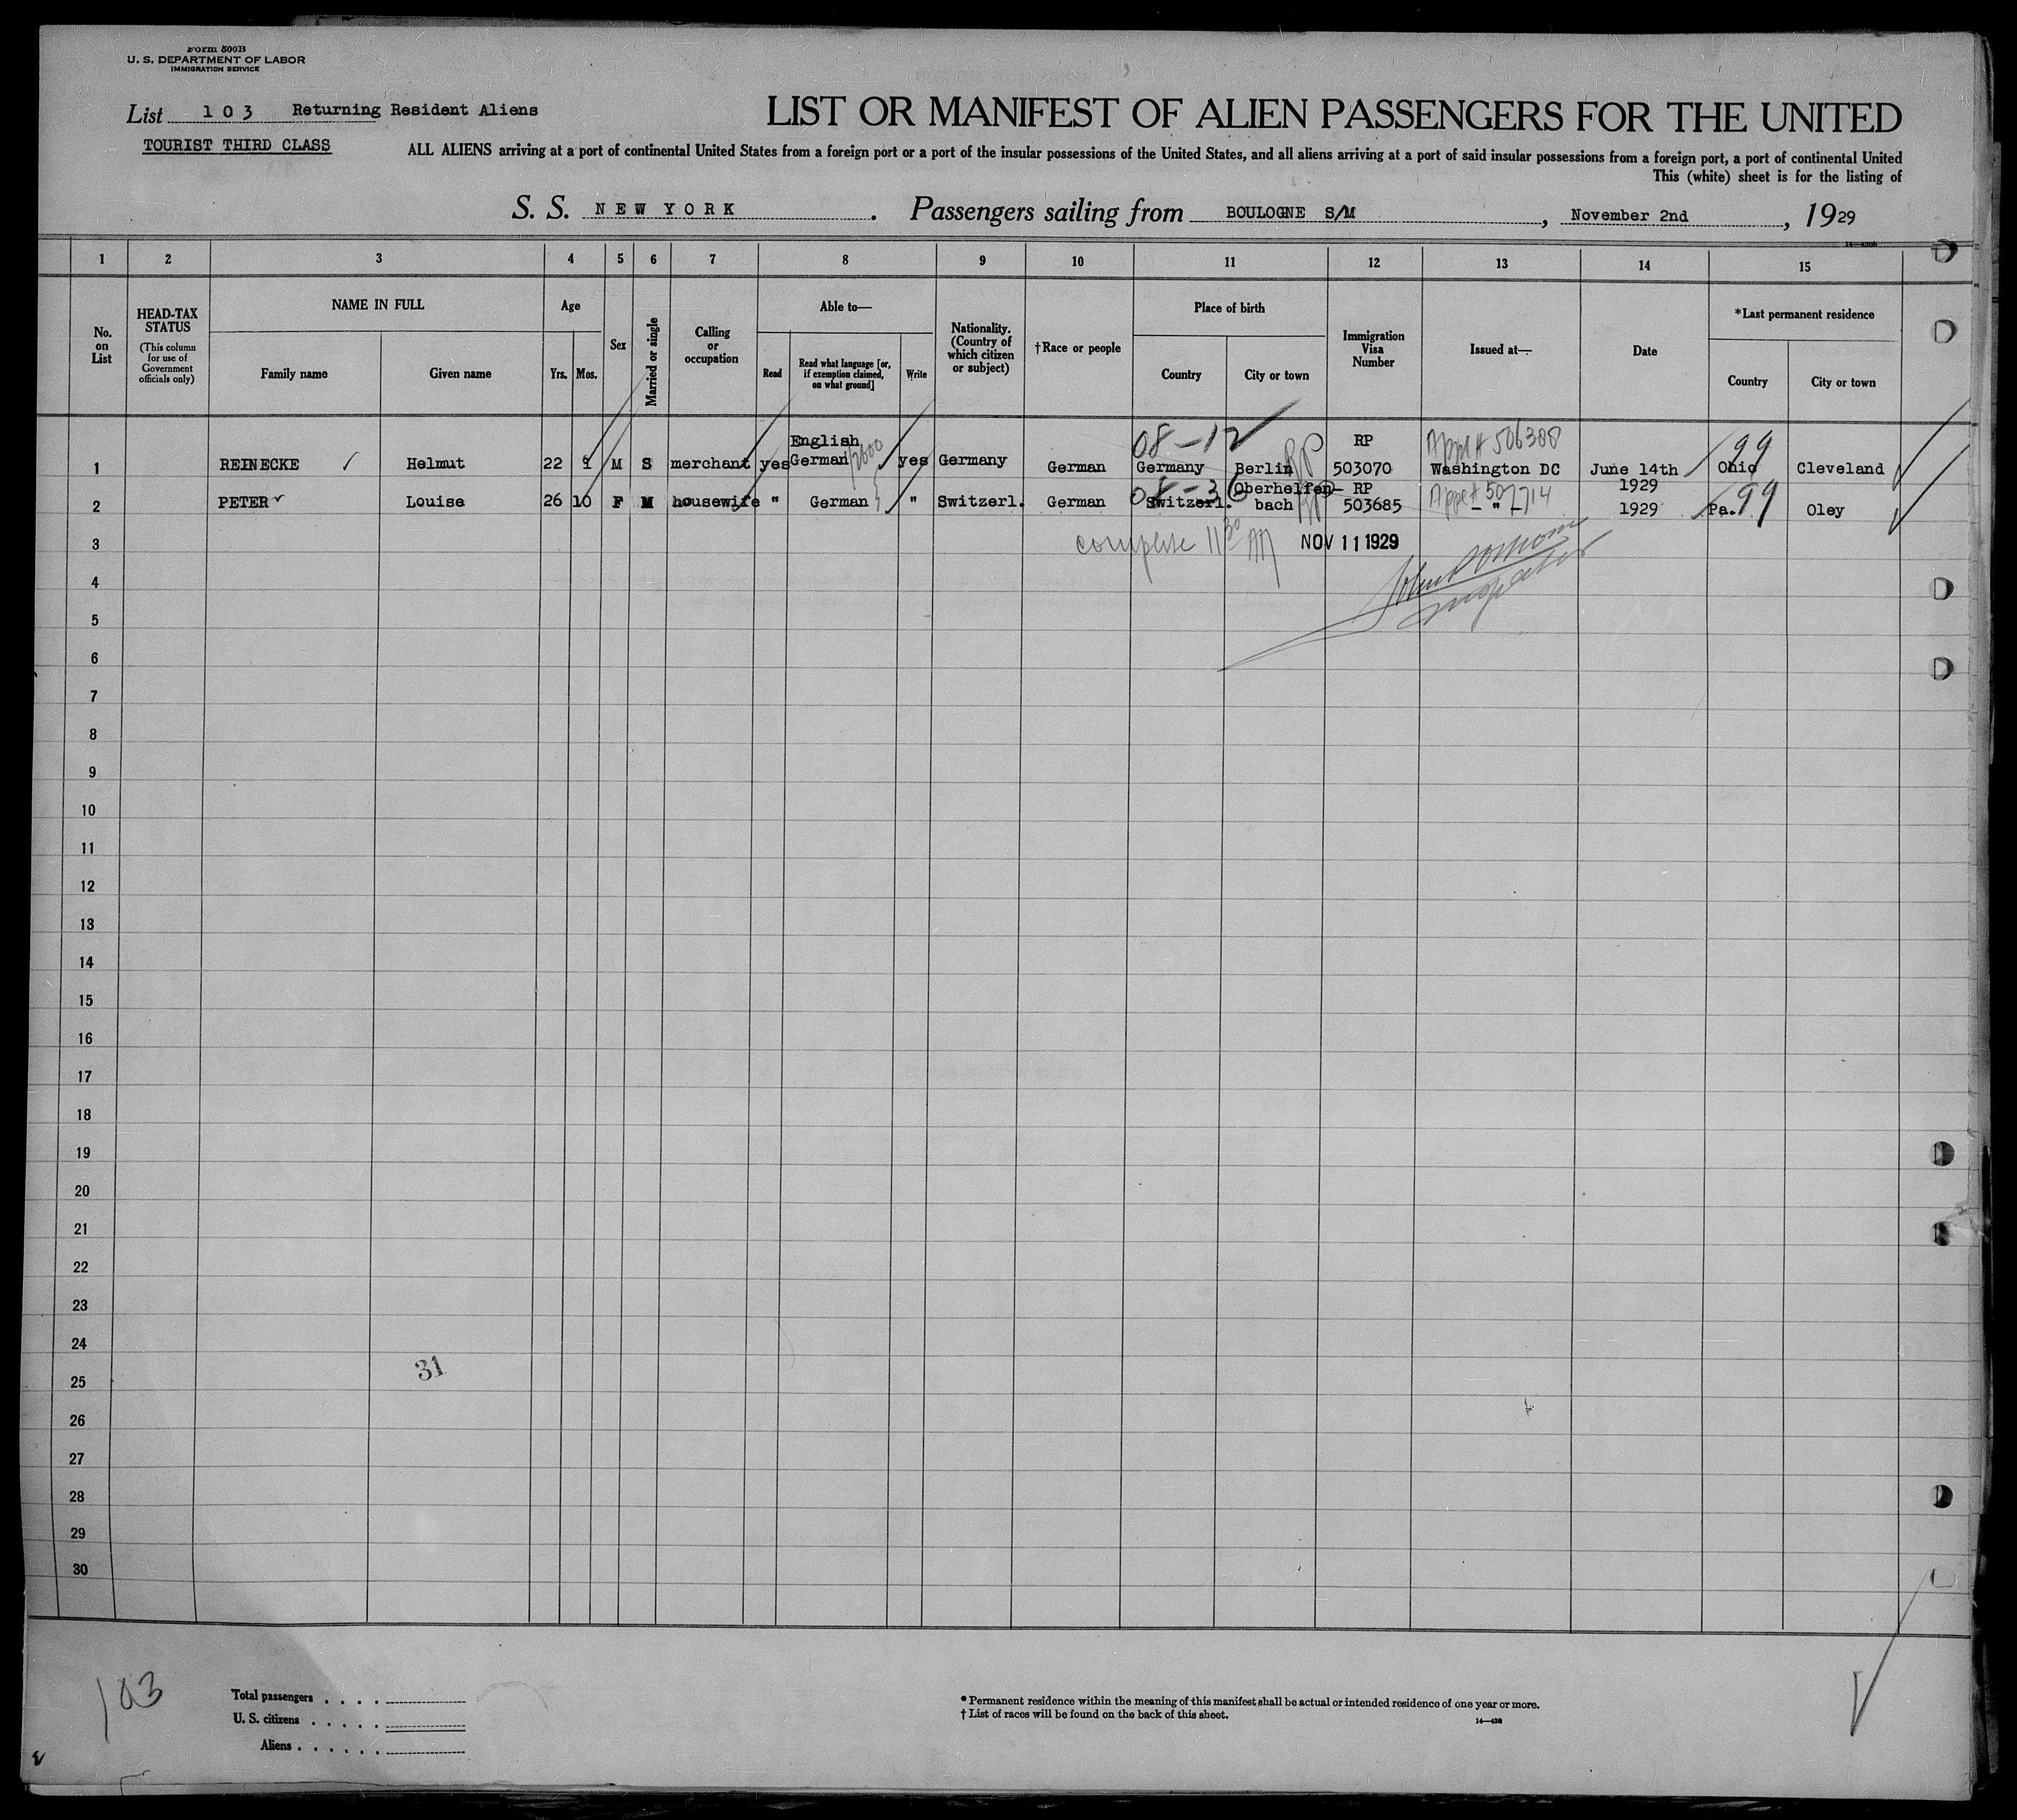 Form 500B
U. S. DEPARTMENT OF LABOR
IMMIGRATION SERVICE
List 103 Returning Resident Aliens
TOURIST THIRD CLASS
LIST OR MANIFEST OF ALIEN PASSENGERS FOR THE UNITED
ALL ALIENS arriving at a port of continental United States from a foreign port or a port of the insular possessions of the United States, and all aliens arriving at a port of said insular possessions from a foreign port, a port of continental United
This (white) sheet is for the listing of
S. S. NEW YORK . Passengers sailing from BOULOGNE S/M , November 2nd , 1929
1 2 3 4 5 6 7 8 9 10 11 12 13 14 15
No. on List
HEAD-TAX STATUS
(This column for use of Government officials only)
NAME IN FULL
Family name Given name
Age
Yrs. Mos.
Sex
Married or single
Calling or occupation
Able to—
Read
Read what language [or, if exemption claimed, on what ground]
Write
Nationality. (Country of which citizen or subject)
†Race or people
Place of birth
Country City or town
Immigration Visa Number
Issued at—
Date
*Last permanent residence
Country City or town
08-12 RP Appl # 506308 99
1 REINECKE Helmut 22 1 M S merchant yes English German yes Germany German Germany Berlin RP 503070 Washington DC June 14th 1929 Ohio Cleveland
08-36 99
2 PETER Louise 26 10 F M housewife " German " Switzerl. German Switzerl. Oberhelfenbach RP 503685 Appl # 507714 - " - 1929 Pa. Oley
3 complete 11 30 AM NOV 11 1929
4
Inspector
5
6
7
8
9
10
11
12
13
14
15
16
17
18
19
20
21
22
23
24
31
25
26
27
28
29
30
103
Total passengers . . . .
U. S. citizens . . . . .
Aliens . . . . . .
* Permanent residence within the meaning of this manifest shall be actual or intended residence of one year or more.
† List of races will be found on the back of this sheet.
14—430